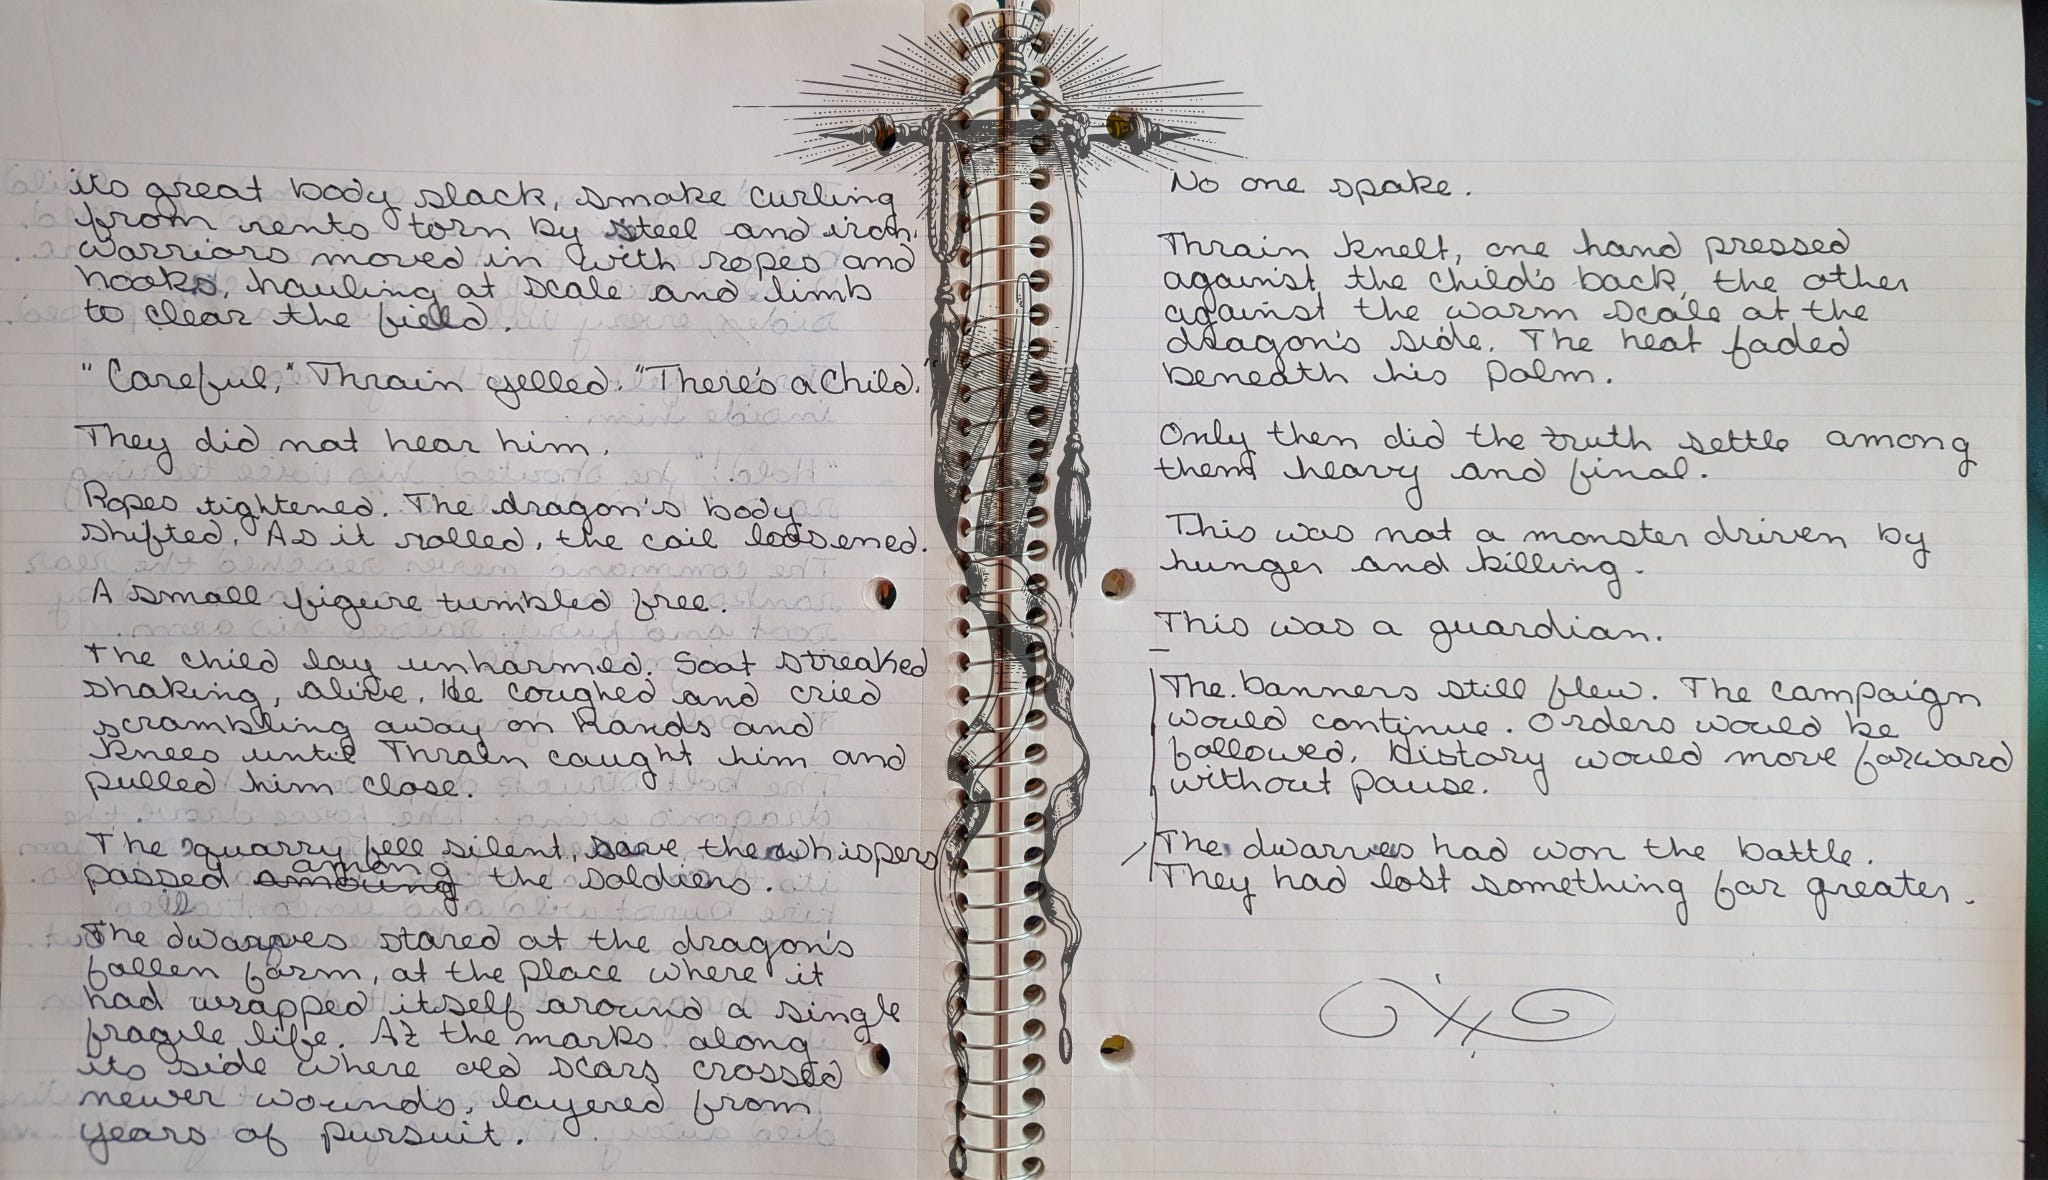 its great body slack, smoke curling
from rents torn by steel and iron.
Warriors moved in with ropes and
hooks, hauling at scale and limb
to clear the field.
"Careful," Thrain yelled. "There's a child."
They did not hear him.
Ropes tightened. The dragon's body
shifted. As it rolled, the coil loosened.
A small figure tumbled free.
The child lay unharmed. Soot streaked
shaking, alive. He coughed and cried
scrambling away on hands and
knees until Thrain caught him and
pulled him close.
The quarry fell silent, save the whispers
among
passed amoung the soldiers.
The dwarves stared at the dragon's
fallen form, at the place where it
had wrapped itself around a single
fragile life. At the marks along
its side where old scars crossed
newer wounds, layered from
years of pursuit.
No one spoke.
Thrain knelt, one hand pressed
against the child's back, the other
against the warm scale at the
dragon's side. The heat faded
beneath his palm.
Only then did the truth settle among
them heavy and final.
This was not a monster driven by
hunger and killing.
This was a guardian.
The banners still flew. The campaign
would continue. Orders would be
followed. History would move forward
without pause.
The dwarves had won the battle.
They had lost something far greater.